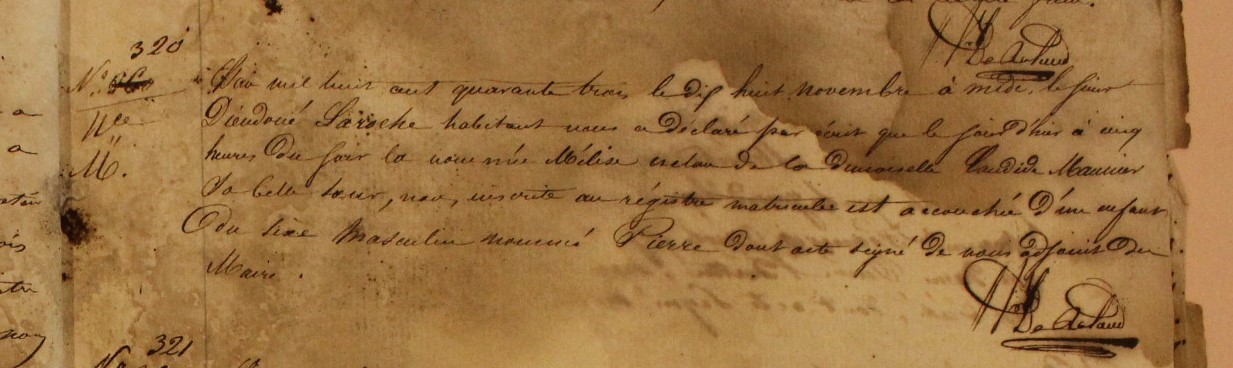 De Artaud
320
N°
L'an mil huit cent quarante trois, le dix huit novembre à midi, le sieur
Dieudoné Laroche habitant nous a déclaré par écrit que le jour d'hier à cinq
heures du soir la nommée Mélise esclave de la demoiselle Maunier
Sa belle soeur, non, inscrite au régistre matricule est accouchée d'un enfant
du sexe Masculin nommé Pierre dont acte signé de nous adjoint du
Maire.
Nce
M.
De Artaud
321